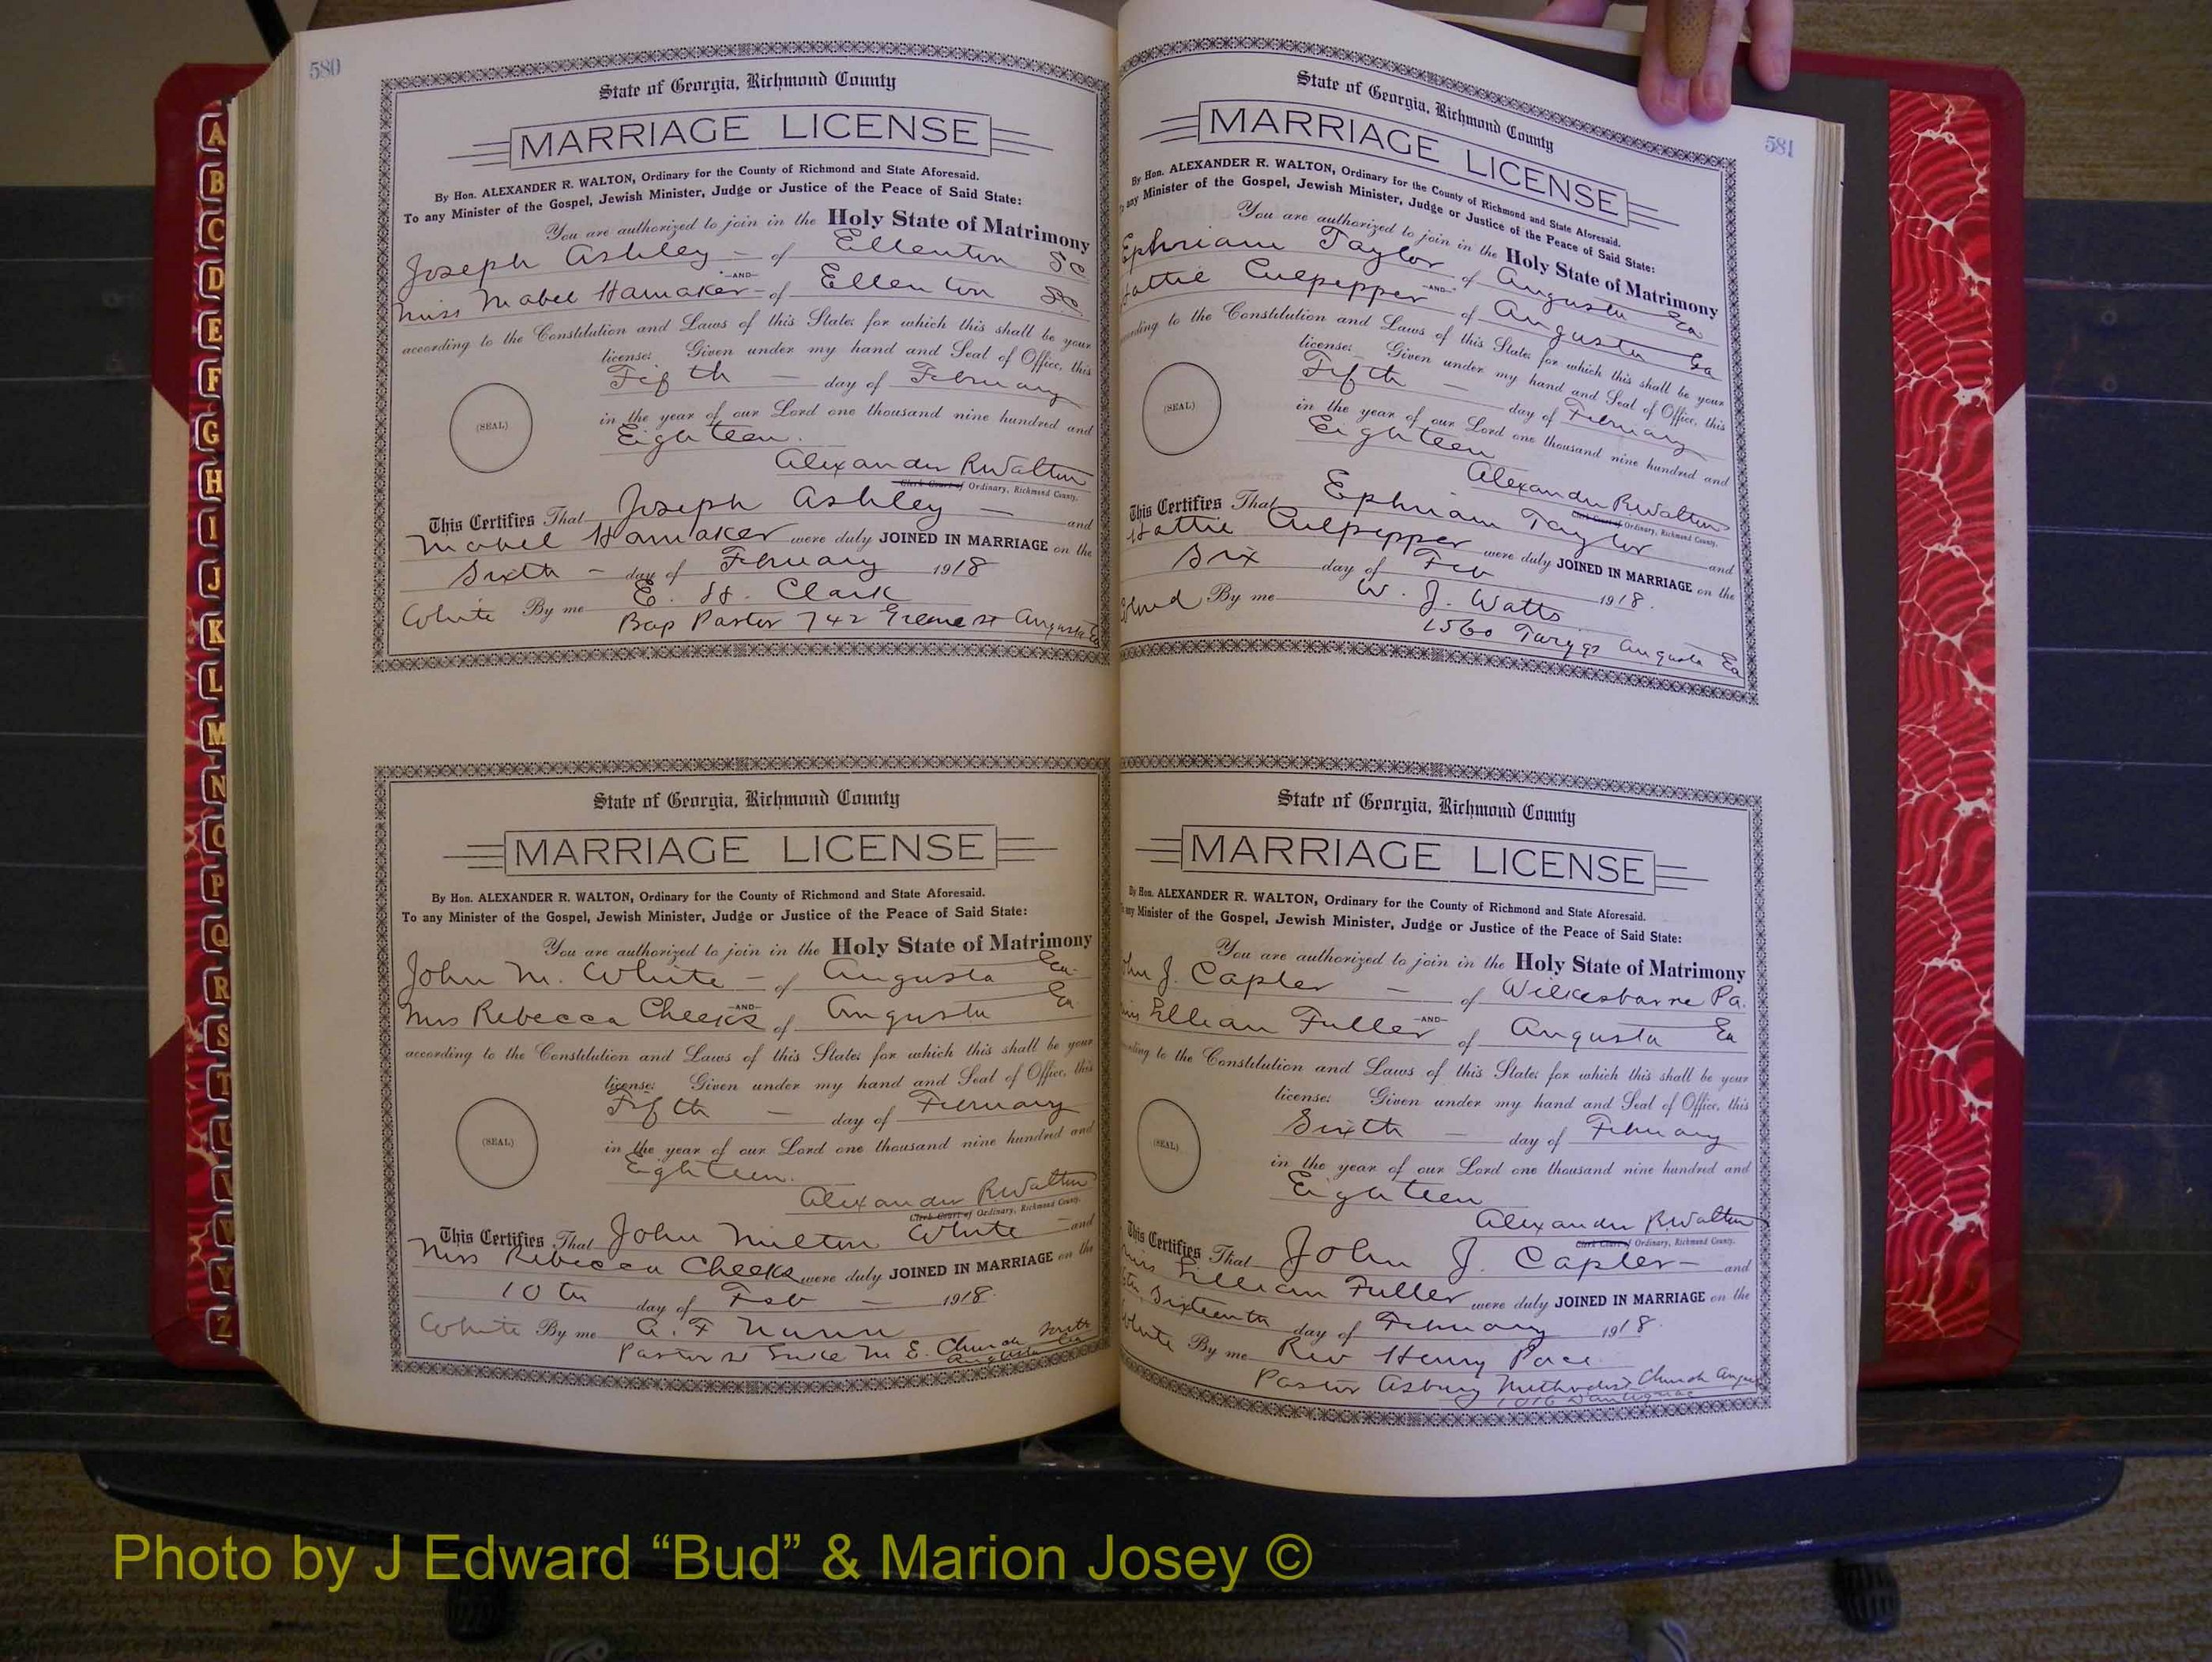 580
State of Georgia, Richmond County
MARRIAGE LICENSE
By Hon. ALEXANDER R. WALTON, Ordinary for the County of Richmond and State Aforesaid.
To any Minister of the Gospel, Jewish Minister, Judge or Justice of the Peace of Said State:
You are authorized to join in the Holy State of Matrimony
Joseph Ashley - of Ellenton SC
-AND-
Miss Mabel Hamaker - of Ellenton SC
according to the Constitution and Laws of this State; for which this shall be your
license; Given under my hand and Seal of Office, this
Fifth - day of February
in the year of our Lord one thousand nine hundred and
(SEAL)
Eighteen.
Alexander R Walton
Clerk Court of Ordinary, Richmond County.
This Certifies That Joseph Ashley - and
Mabel Hamaker were duly JOINED IN MARRIAGE on the
Sixth - day of February 1918
White By me E. H. Clark
Bap Pastor 742 Greene st Augusta Ga
State of Georgia, Richmond County
MARRIAGE LICENSE
By Hon. ALEXANDER R. WALTON, Ordinary for the County of Richmond and State Aforesaid.
To any Minister of the Gospel, Jewish Minister, Judge or Justice of the Peace of Said State:
You are authorized to join in the Holy State of Matrimony
John M. White - of Augusta Ga.
-AND-
Miss Rebecca Cheeks of Augusta Ga.
according to the Constitution and Laws of this State; for which this shall be your
license; Given under my hand and Seal of Office, this
Fifth - day of February
(SEAL)
in the year of our Lord one thousand nine hundred and
Eighteen.
Alexander R Walton
Clerk Court of Ordinary, Richmond County.
This Certifies That John Milton White - and
Miss Rebecca Cheeks were duly JOINED IN MARRIAGE on the
10th day of Feb - 1918.
White By me A. F Nunn
Pastor St Luke M E. Church South
Augusta Ga
581
State of Georgia, Richmond County
MARRIAGE LICENSE
By Hon. ALEXANDER R. WALTON, Ordinary for the County of Richmond and State Aforesaid.
any Minister of the Gospel, Jewish Minister, Judge or Justice of the Peace of Said State:
You are authorized to join in the Holy State of Matrimony
Ephriam Taylor of Augusta Ga
-AND-
Hattie Culpepper of Augusta Ga
according to the Constitution and Laws of this State; for which this shall be your
license; Given under my hand and Seal of Office, this
Fifth - day of February
(SEAL)
in the year of our Lord one thousand nine hundred and
Eighteen
Alexander R Walton
Clerk Court of Ordinary, Richmond County.
This Certifies That Ephriam Taylor and
Hattie Culpepper were duly JOINED IN MARRIAGE on the
Six day of Feb 1918.
By me W. J. Watts
1560 Augusta Ga
State of Georgia, Richmond County
MARRIAGE LICENSE
By Hon. ALEXANDER R. WALTON, Ordinary for the County of Richmond and State Aforesaid.
any Minister of the Gospel, Jewish Minister, Judge or Justice of the Peace of Said State:
You are authorized to join in the Holy State of Matrimony
John J. Capler - of Wilkesbarre Pa.
-AND-
Miss Lillian Fuller of Augusta Ga
according to the Constitution and Laws of this State; for which this shall be your
license; Given under my hand and Seal of Office, this
Sixth - day of February
(SEAL)
in the year of our Lord one thousand nine hundred and
Eighteen
Alexander R. Walton
Clerk Court of Ordinary, Richmond County.
This Certifies That John J. Capler - and
Miss Lillian Fuller were duly JOINED IN MARRIAGE on the
Sixteenth day of February 1918.
White By me Rev Henry Pace.
Pastor Asbury Methodist Church
1016 D'Antignac
A
B
C
D
E
F
G
H
I
J
K
L
M
N
O
P
Q
R
S
T
U
V
W
Y
Z
Photo by J Edward “Bud” & Marion Josey ©